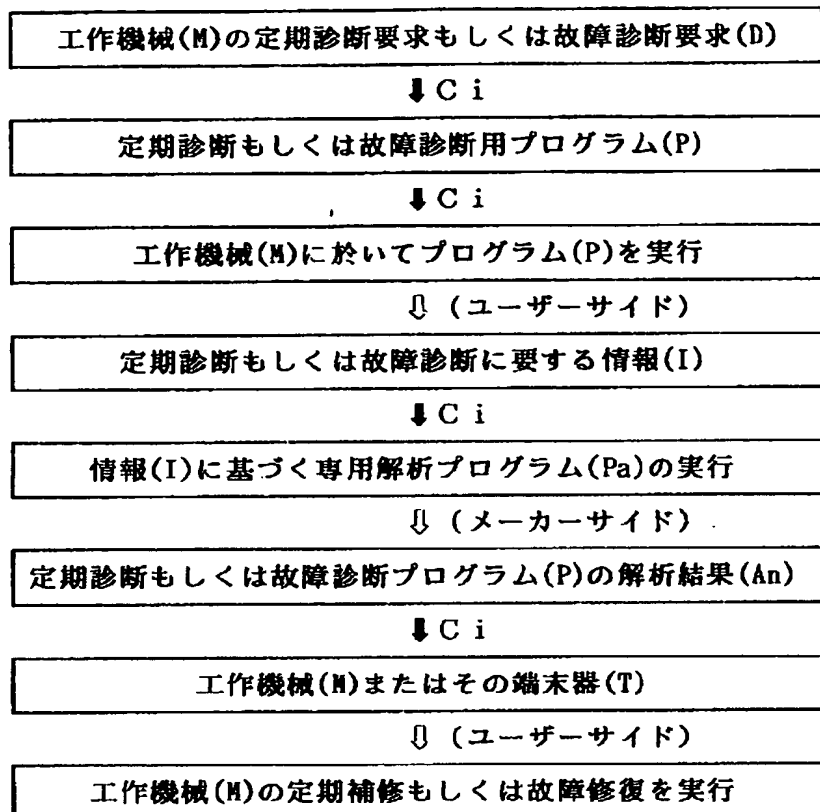 工作機械(M)の定期診断要求もしくは故障診断要求(D)
⬇Ci
定期診断もしくは故障診断用プログラム(P)
⬇Ci
工作機械(M)に於いてプログラム(P)を実行
⇩(ユーザーサイド)
定期診断もしくは故障診断に要する情報(I)
⬇Ci
情報(I)に基づく専用解析プログラム(Pa)の実行
⇩(メーカーサイド)
定期診断もしくは故障診断プログラム(P)の解析結果(An)
⬇Ci
工作機械(M)またはその端末器(T)
⇩(ユーザーサイド)
工作機械(M)の定期補修もしくは故障修復を実行